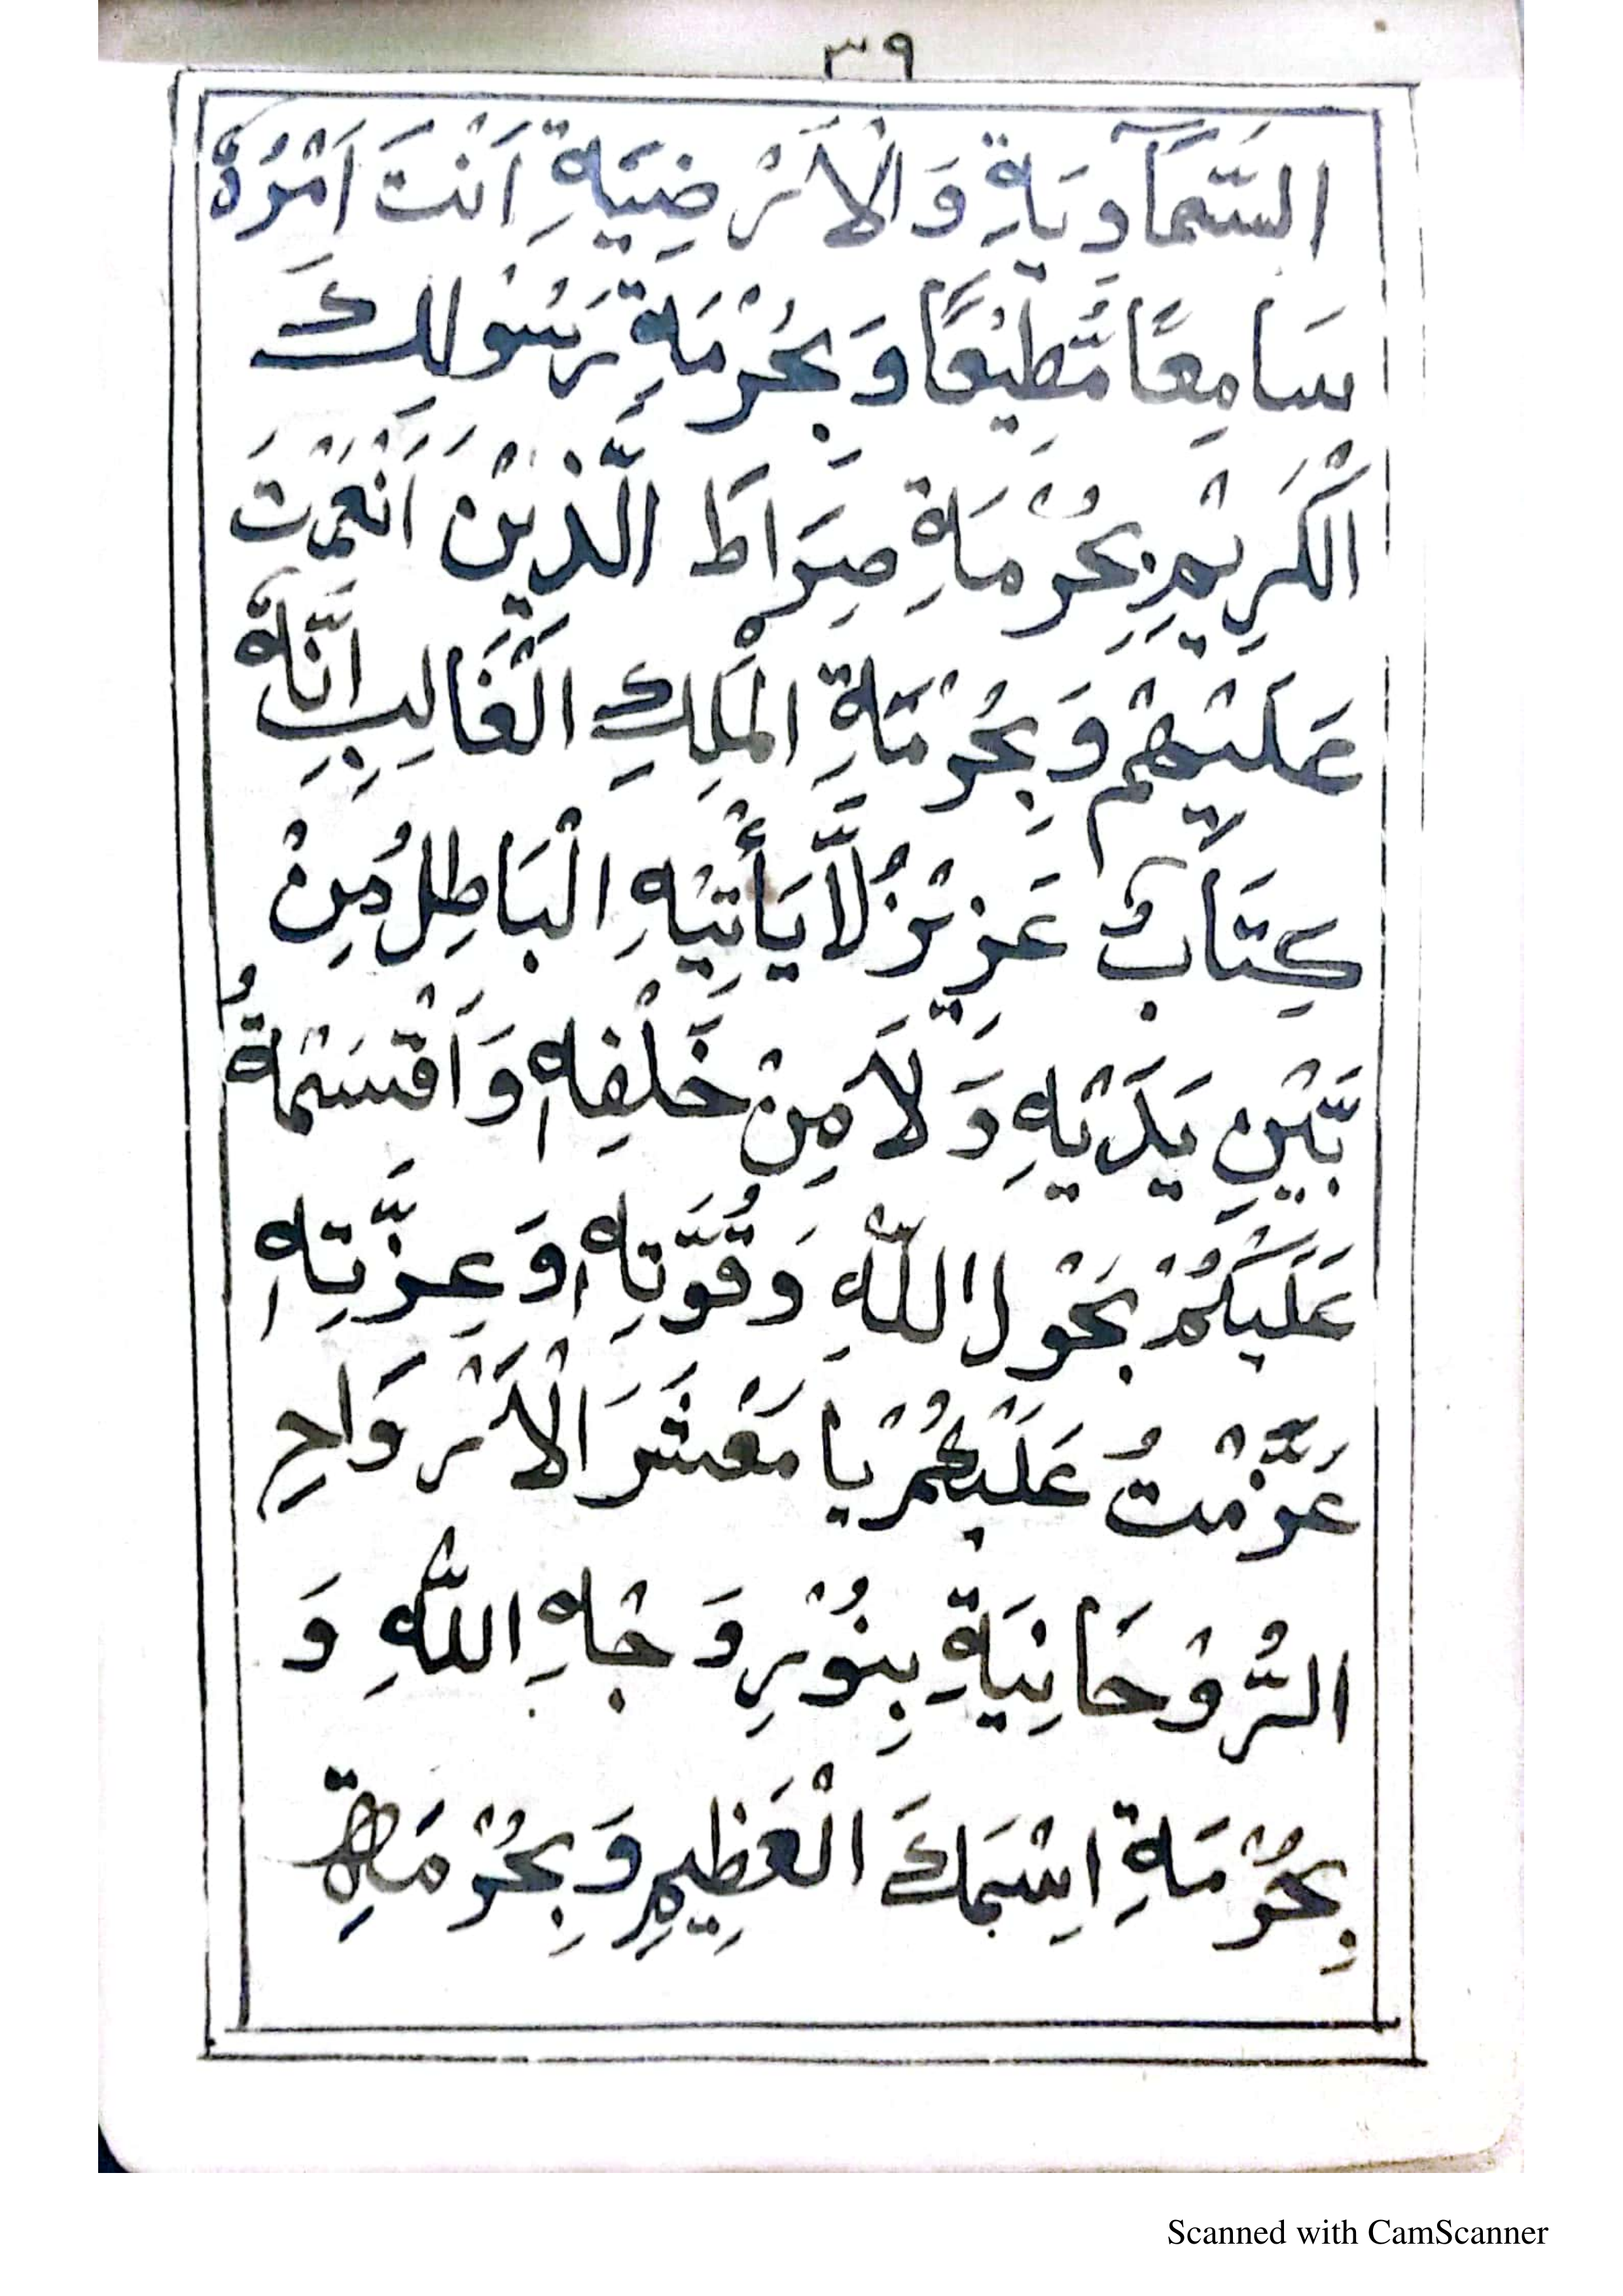 ٣٩
السَّمَآوِيَةِ وَالْاَرْضِيَةِ اَنْتَ اَمْرُهٗ
سَامِعًا مُّطِيْعًا وَبِحُرْمَةِ رَسُوْلِكَ
الْكَرِيْمِ بِحُرْمَةِ صِرَاطَ الَّذِيْنَ اَنْعَمْتَ
عَلَيْهِمْ وَبِحُرْمَةِ الْمَلِكِ الْغَالِبِ اِنَّهٗ
كِتَابٌ عَزِيْزُ لَّا يَأْتِيْهِ الْبَاطِلُ مِنْ
بَّيْنِ يَدَيْهِ وَلَا مِنْ خَلْفِهٖ وَاَقْسَمْةُ
عَلَيْكُمْ بِحَوْلِ اللّٰهِ وَقُوَّتِهٖ وَعِزَّتِهٖ
عَزَّمْتُ عَلَيْكُمْ يَا مَعْشَرَ الْاَرْوَاحِ
الرُّوْحَانِيَةِ بِنُوْرِ وَجْهِ اللّٰهِ وَ
بِحُرْمَةِ اِسْمِكَ الْعَظِيمِ وَبِحُرْمَةِ
Scanned with CamScanner